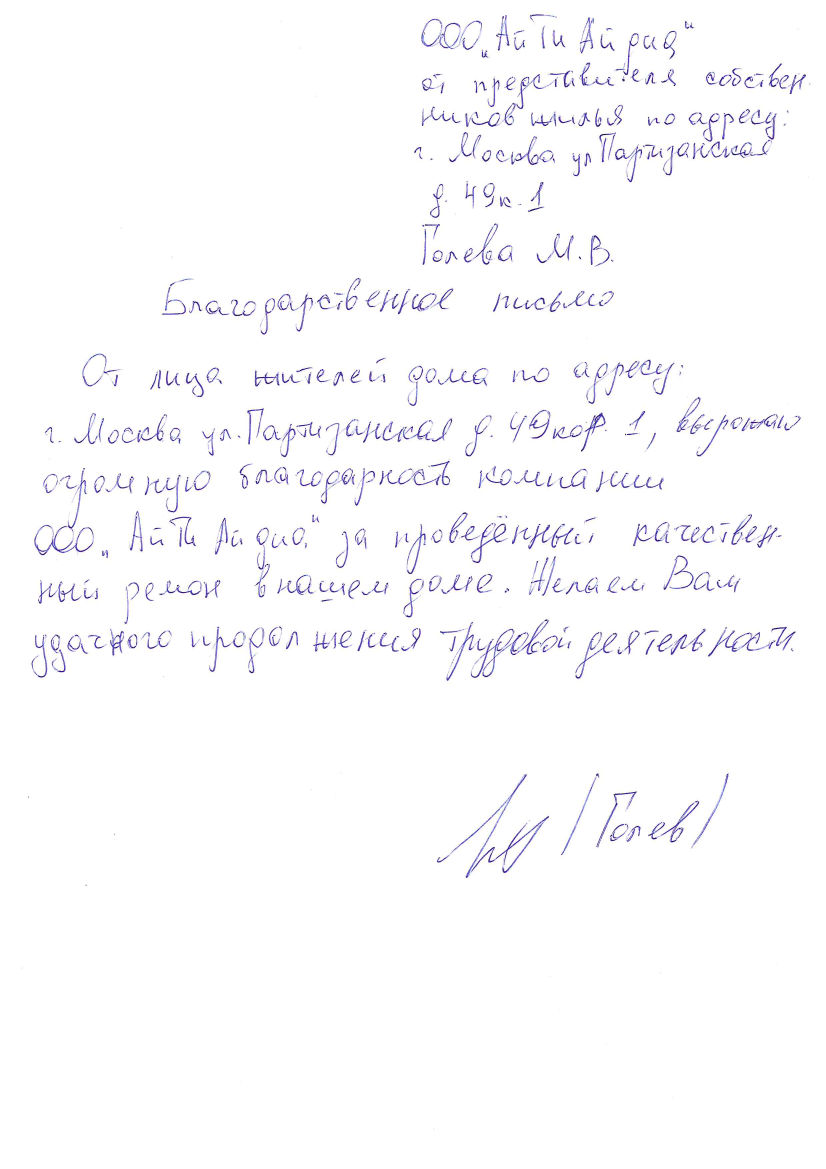 ООО „Ай Ти Ай диа"
от представителя собствен
ников жилья по адресу:
г. Москва ул Партизанская
д. 49 к. 1
Голева М. В.
Благодарственное письмо
От лица жителей дома по адресу:
г. Москва ул. Партизанская д. 49 кор. 1, выражаю
огромную благодарность компании
ООО „Ай Ти Ай диа" за проведённый качествен-
ный ремон в нашем доме. Желаем Вам
удачного продолжения трудовой деятельности.
/ Голев /